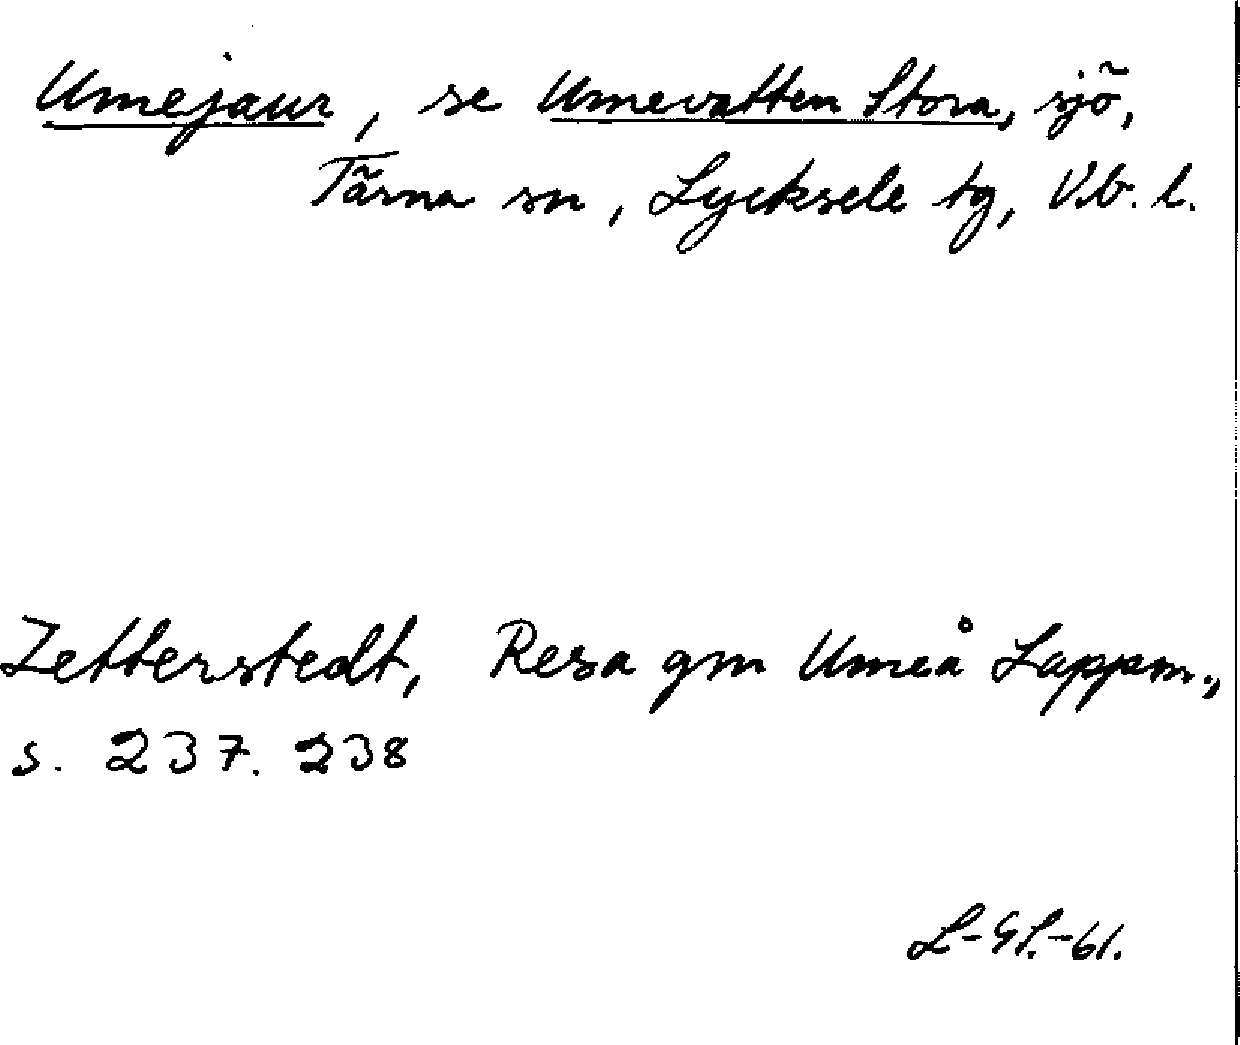 Umejaur, se Umevatten Stora, sjö,
Tärna sn, Lycksele tg, Vb. l.
Zetterstedt, Resa gm Umeå Lappm.,
s. 237. 238
L-Gl.-61.